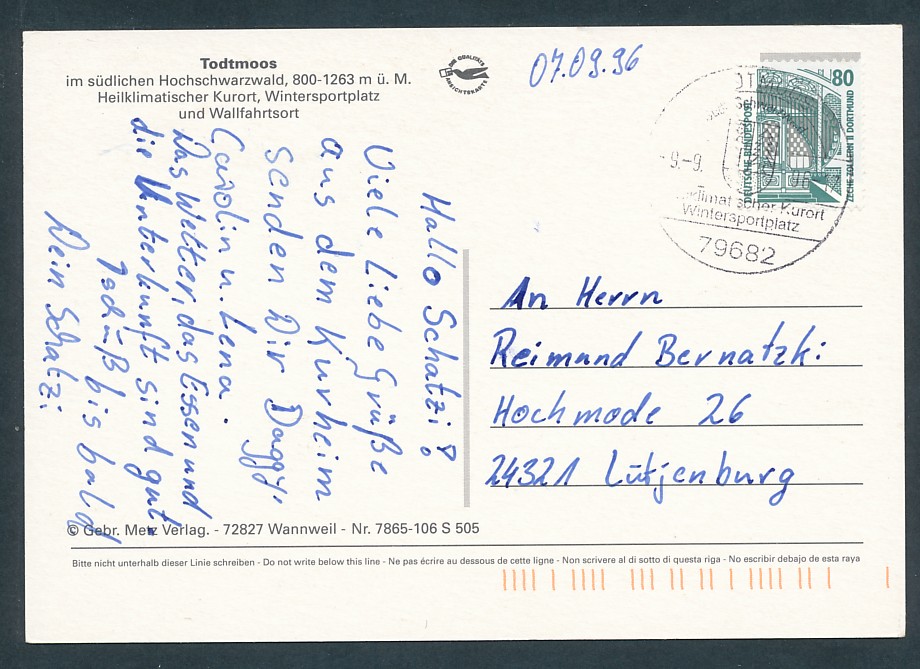 Todtmoos
im südlichen Hochschwarzwald, 800-1263 m ü. M.
Heilklimatischer Kurort, Wintersportplatz
und Wallfahrtsort
DIE QUALITÄTS
ANSICHTSKARTE
07.09.96
80
DEUTSCHE BUNDESPOST
ZECHE ZOLLERN II DORTMUND
-9.-9.
96
Kurort
Wintersportplatz
79682
Hallo Schatzi!
Viele Liebe Grüße
aus dem Kurheim
senden Dir Daggy,
Carolin u. Lena.
Das Wetter, das Essen und
die Unterkunft sind gut.
Tschüß bis bald
Dein Schatzi
An Herrn
Reimund Bernatzki
Hochmode 26
24321 Lütjenburg
© Gebr. Metz Verlag. - 72827 Wannweil - Nr. 7865-106 S 505
Bitte nicht unterhalb dieser Linie schreiben - Do not write below this line - Ne pas écrire au dessous de cette ligne - Non scrivere al di sotto di questa riga - No escribir debajo de esta raya